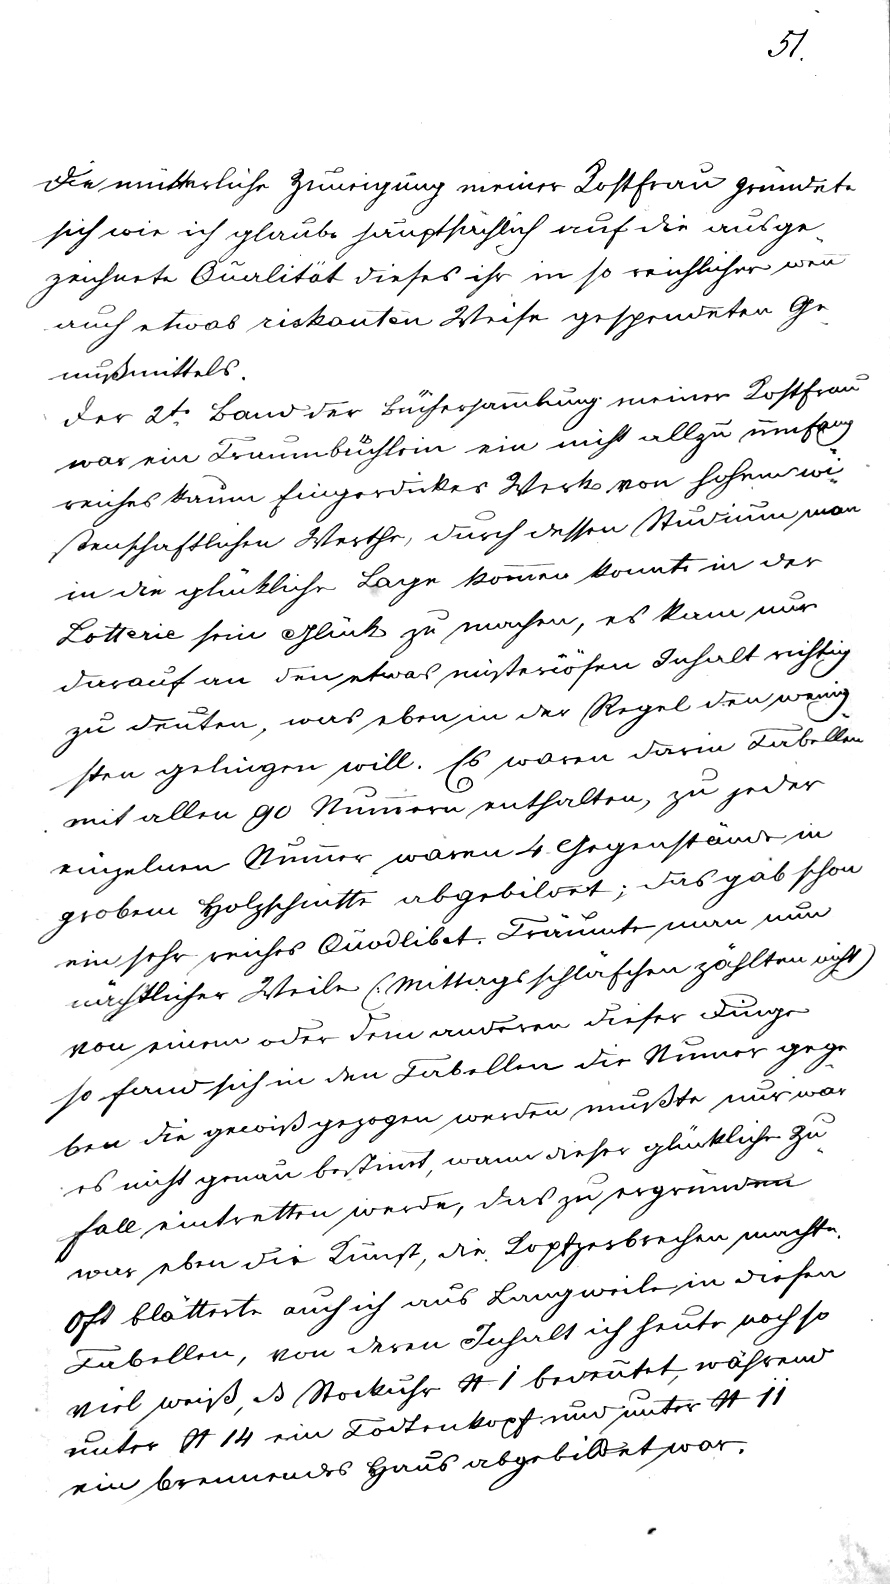 51.
Die mütterliche Zuneigung meiner Kostfrau gründete
sich wie ich glaube hauptsächlich auf die ausge-
zeichnete Qualität dieses ihr in so reichlicher weñ
auch etwas riskanten Weise gespendeten Ge-
nußmittels.
Der 2te Band der Büchersam̄lung meiner Kostfrau
war ein Traumbüchlein ein nicht allzu umfang
reiches kaum fingerdickes Werk von hohem wi-
ßenschaftlichen Werthe, durch dessen Studium man
in die glückliche Lage kom̄en konnte in der
Lotterie sein Glück zu machen, es kam nur
darauf an den etwas misteriösen Inhalt richtig
zu deuten, was eben in der Regel den wenig-
sten gelingen will. Es waren darin Tabellen
mit allen 90 Num̄ern enthalten, zu jeder
einzelnen Num̄er waren 4 Gegenstände in
grobem Holzschnitte abgebildet; das gab schon
ein sehr reiches Quodlibet. Träumte man nun
nächtlicher Weile (: Mittagsschläfchen zählten nicht)
von einem oder dem anderen dieser Dinge
so fand sich in den Tabellen die Numer gege-
ben die gewiß gezogen werden mußte nur war
es nicht genau bestim̄t, wann dieser glückliche Zu-
fall eintretten werde, das zu ergründen
war eben die Kunst, die Kopfzerbrechen machte.
Oft blätterte auch ich aus Langweile in diesen
Tabellen, von deren Inhalt ich heute noch so
viel weiß, dß Stockuhr # 1 bedeutet, während
unter # 14 ein Todtenkopf und unter # 11
ein brennendes Haus abgebildet war.